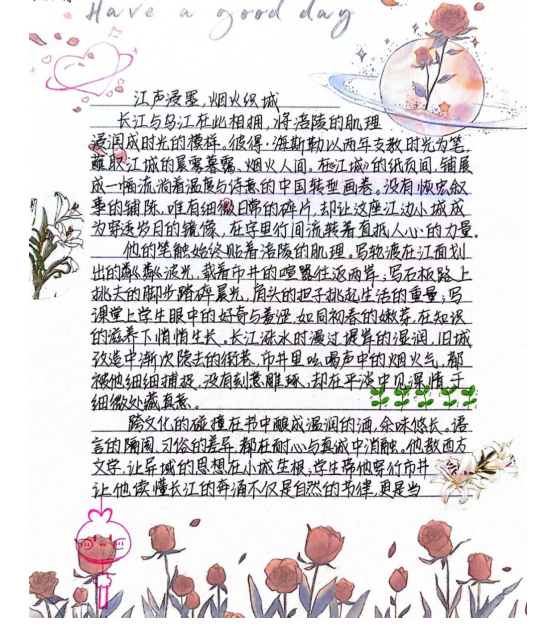 Have a good day
江声浸墨，烟火织城
长江与乌江在此相拥，将涪陵的肌理
浸润成时光的模样。彼得·海斯勒以两年支教时光为笔，
蘸取江城的晨雾暮霭、烟火人间。在《江城》的纸页间，铺展
成一幅流淌着温度与诗意的中国转型画卷，没有恢宏叙
事的铺陈，唯有细微日常的碎片，却让这座江边小城成
为穿透岁月的镜像，在字里行间流转着直抵人心的力量。
他的笔触始终贴着涪陵的肌理。写轮渡在江面划
出的粼粼波光，载着市井的喧嚣往返两岸；写石板路上
挑夫的脚步踏碎晨光，肩头的担子挑起生活的重量；写
课堂上学生眼中的好奇与羞涩，如同初春的嫩芽，在知识
的滋养下悄悄生长。长江涨水时漫过堤岸的湿润，旧城
改造中渐次隐去的街巷，市井里吆喝声中的烟火气，都
被他细细捕捉，没有刻意雕琢，却在平淡中见深情，于
细微处藏真意。
跨文化的碰撞在书中酿成温润的酒，余味悠长。语
言的隔阂、习俗的差异，都在耐心与真诚中消融。他教西方
文学，让异域的思想在小城生根，学生带他穿行市井
让他读懂长江的奔涌不仅是自然的节律，更是当